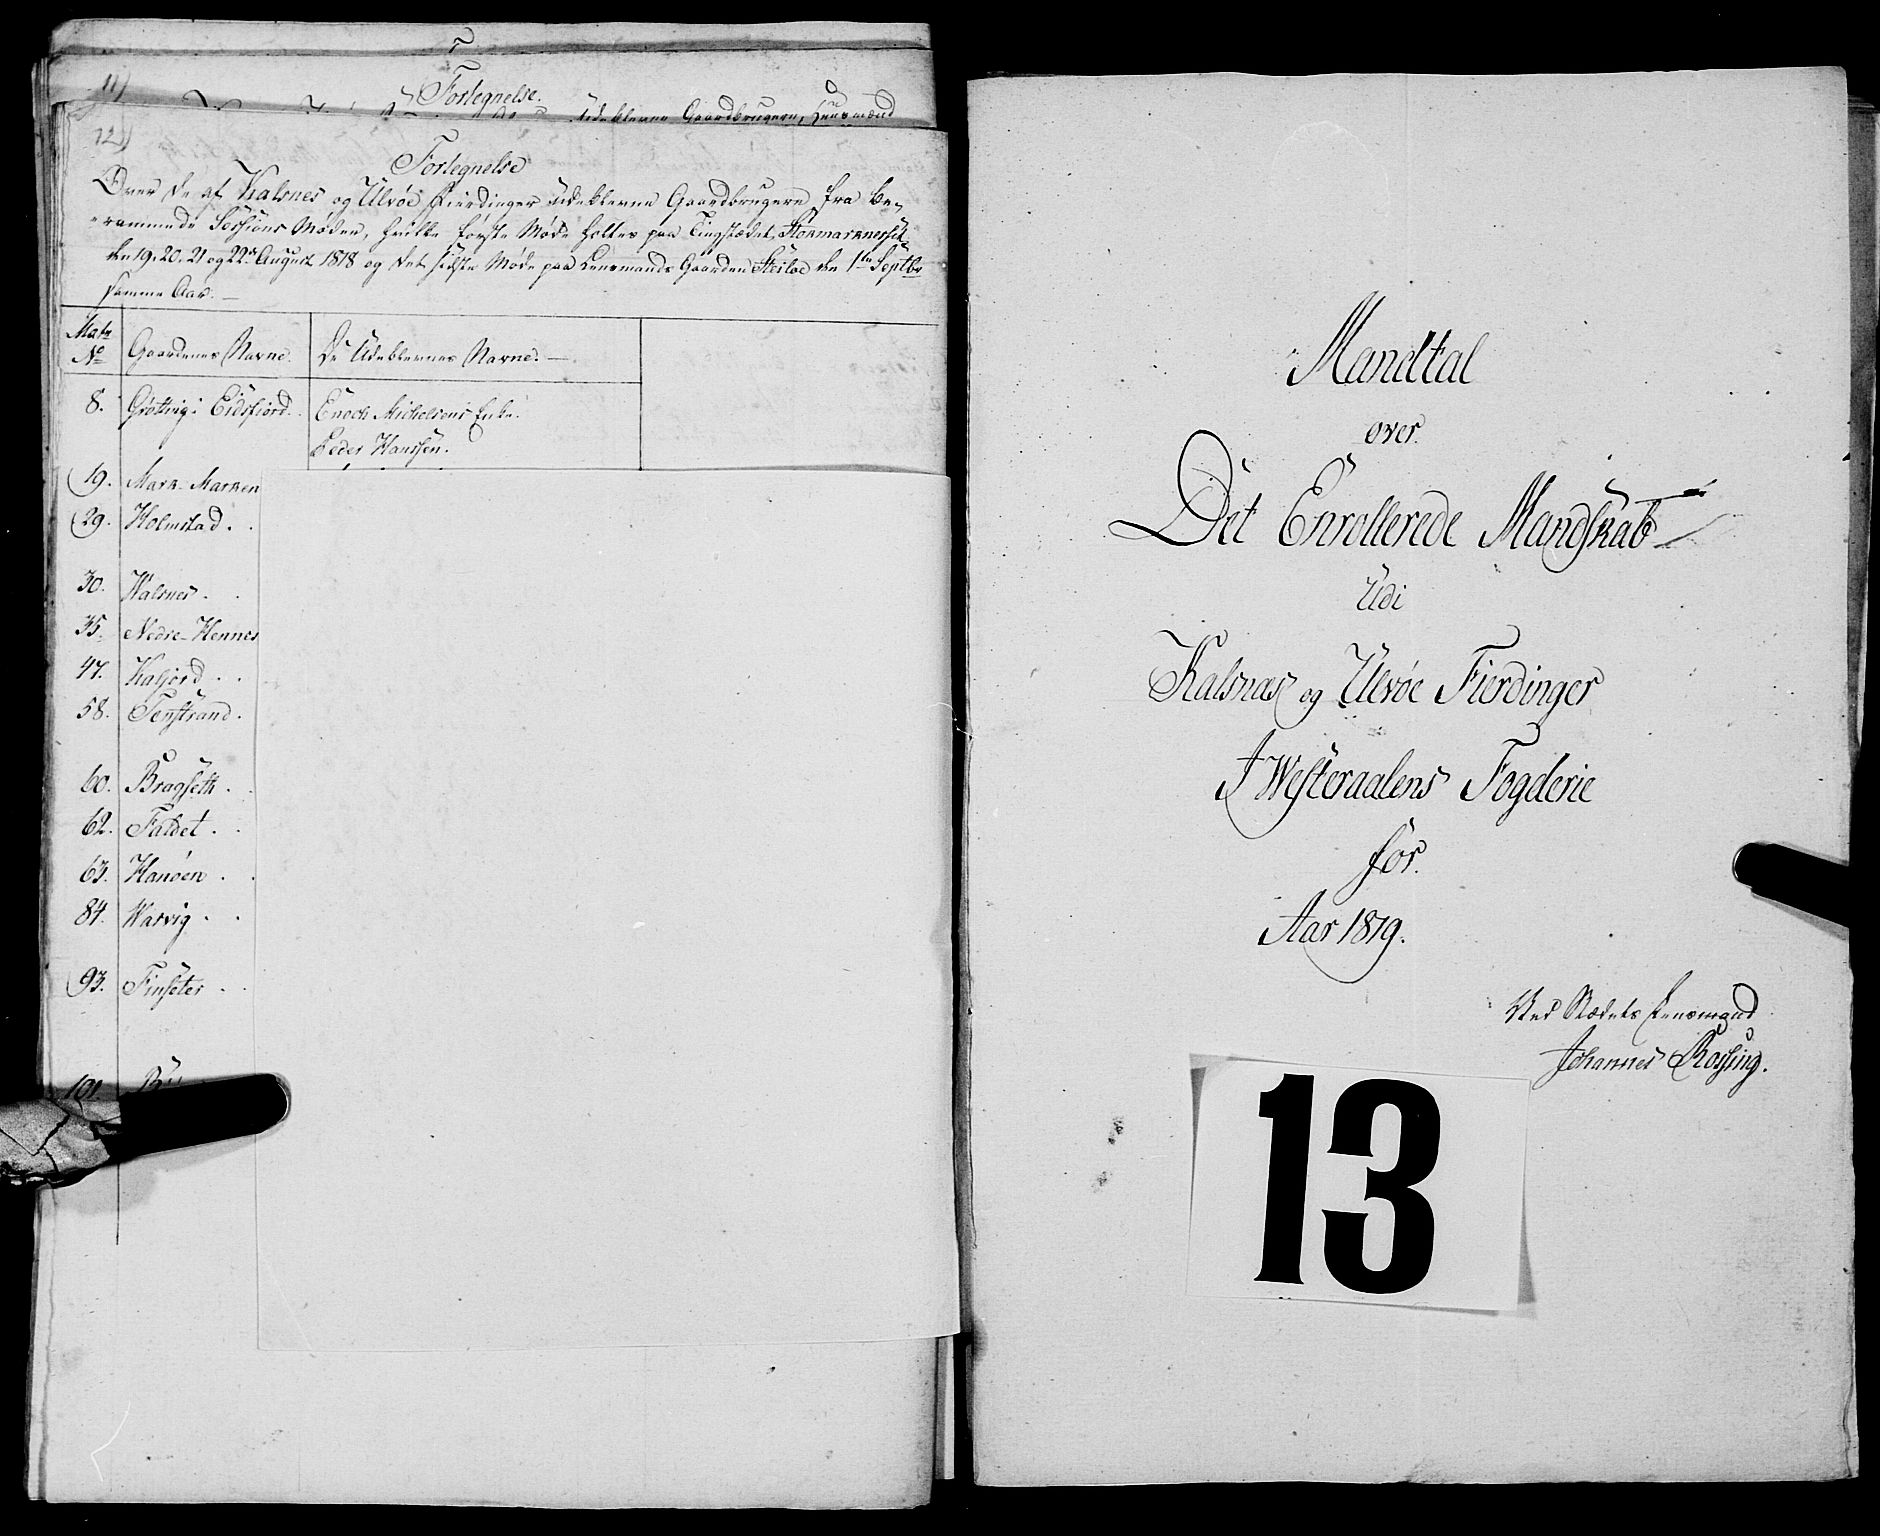 11)
Fortegnelse.
udeblevne Gaardbrugere, Huusmænd
12)
Fortegnelse
Over de af Kalsnes og Ulvøe Fierdinger udeblevne Gaardbrugere fra be-
rammede Sessions Møder, hvilke første Møde holtes paa Tingstædet Stokmarknes
den 19, 20, 21 og 22de August 1818 og det sidste Møde paa Lensmands Gaarden Steiloe den 1ste Septbr
samme Aar.
Matr No Gaardenes Navne. De Udeblevnes Navne.
8. Grøtting i Eidsfiord. Enoch Michelsens Enke.
Peder Hanssen.
19. Mark-Marken
29. Holmstad
30. Kalsnes
35. Nedre-Hennes
47. Kaljord
58. Tenstrand
60. Bragseth
62. Faldet
63. Hanøen
84. Warvig
93. Finseter
101.
Mandtal
over
Det Enrollerede Mandskab
Udi
Kalsnæs og Ulvøe Fierdinger
I Westeraalens Fogderie
for
Aar 1819.
Ved Stædets Lensmand
Johannes Rossing.
13